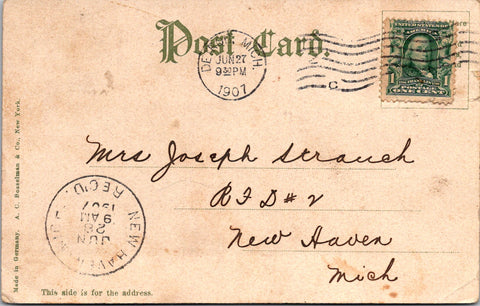 Post Card.
DETROIT, MICH.
JUN 27
9 30 PM
1907
C.
Mrs Joseph Strauch
RFD # 2
New Haven
Mich
NEW HAVEN
REC'D.
JUN
28
9 AM
1907
Made in Germany. A. C. Bosselman & Co., New York.
This side is for the address.